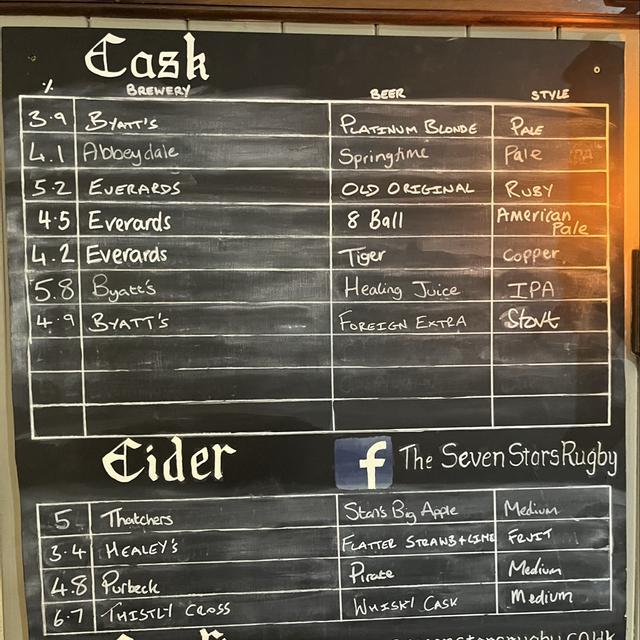 Cask
% BREWERY BEER STYLE
3.9 BYATT'S PLATINUM BLONDE PALE
4.1 Abbeydale Springtime Pale
5.2 EVERARDS OLD ORIGINAL RUBY
4.5 Everards 8 Ball American Pale
4.2 Everards Tiger Copper
5.8 Byatt's Healing Juice IPA
4.9 BYATT'S FOREIGN EXTRA Stout
Cider
f The SevenStarsRugby
5 Thatchers Stan's Big Apple Medium
3.4 HEALEY'S FLATTER STRAWB+LIME FRUIT
4.8 Purbeck Pirate Medium
6.7 THISTLY CROSS WHISKY CASK Medium